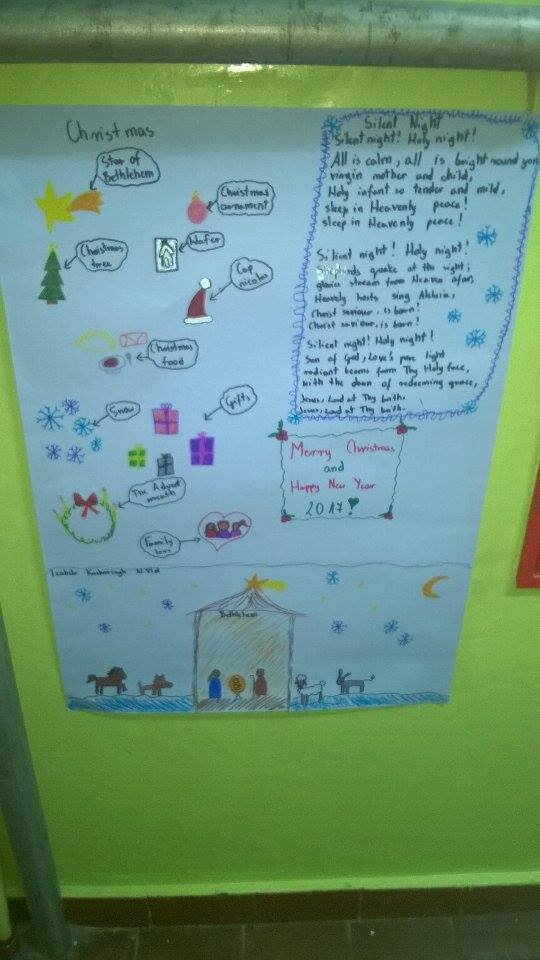 Christmas
Star of
Bethlehem
Christmas
ornament
Wafer
Christmas
tree
Cap
nicolas
Christmas
food
Snow
Gifts
The Advent
wreath
Family
love
Silent Night
Silent night! Holy night!
All is calm, all is bright round yon
virgin mother and child,
Holy infant so tender and mild,
sleep in Heavenly peace!
sleep in Heavenly peace!
Silient night! Holy night!
quake at the sight;
glories stream from Heaven afar,
Heavenly hosts sing Aleluia,
Christ saviour, is born!
Christ saviour, is born!
Silient night! Holy night!
Son of God, Love's pure light
radiant beams from Thy Holy face,
with the dawn of redeeming grace,
Jesus, Lord at Thy birth.
Jesus, Lord at Thy birth.
Merry Christmas
and
Happy New Year
2017!
Bethlehem